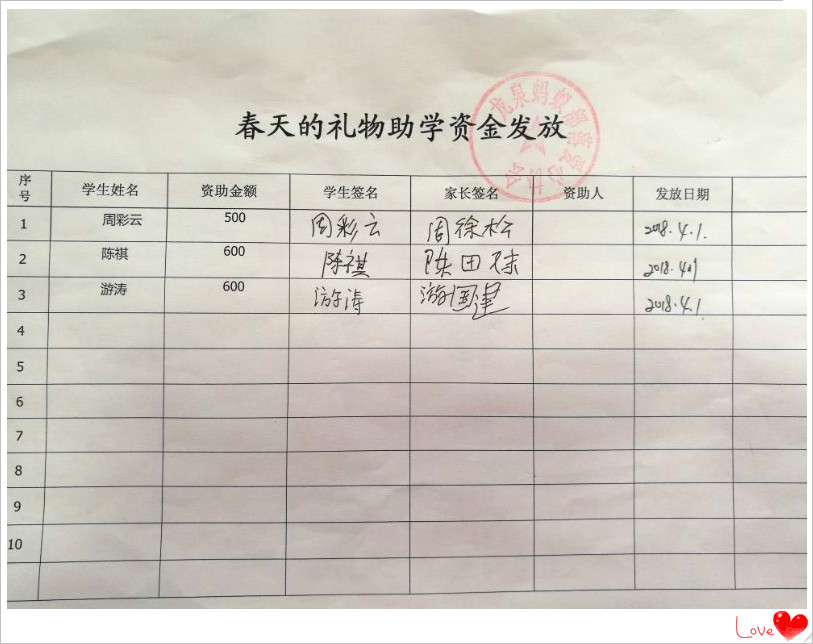 春天的礼物助学资金发放
龙泉蚂蚁
爱心协会
序号 学生姓名 资助金额 学生签名 家长签名 资助人 发放日期
1 周彩云 500 周彩云 2018.4.1.
2 陈祺 600 陈祺 2018.4.1
3 游涛 600 游涛 游国建 2018.4.1.
4
5
6
7
8
9
10
Love